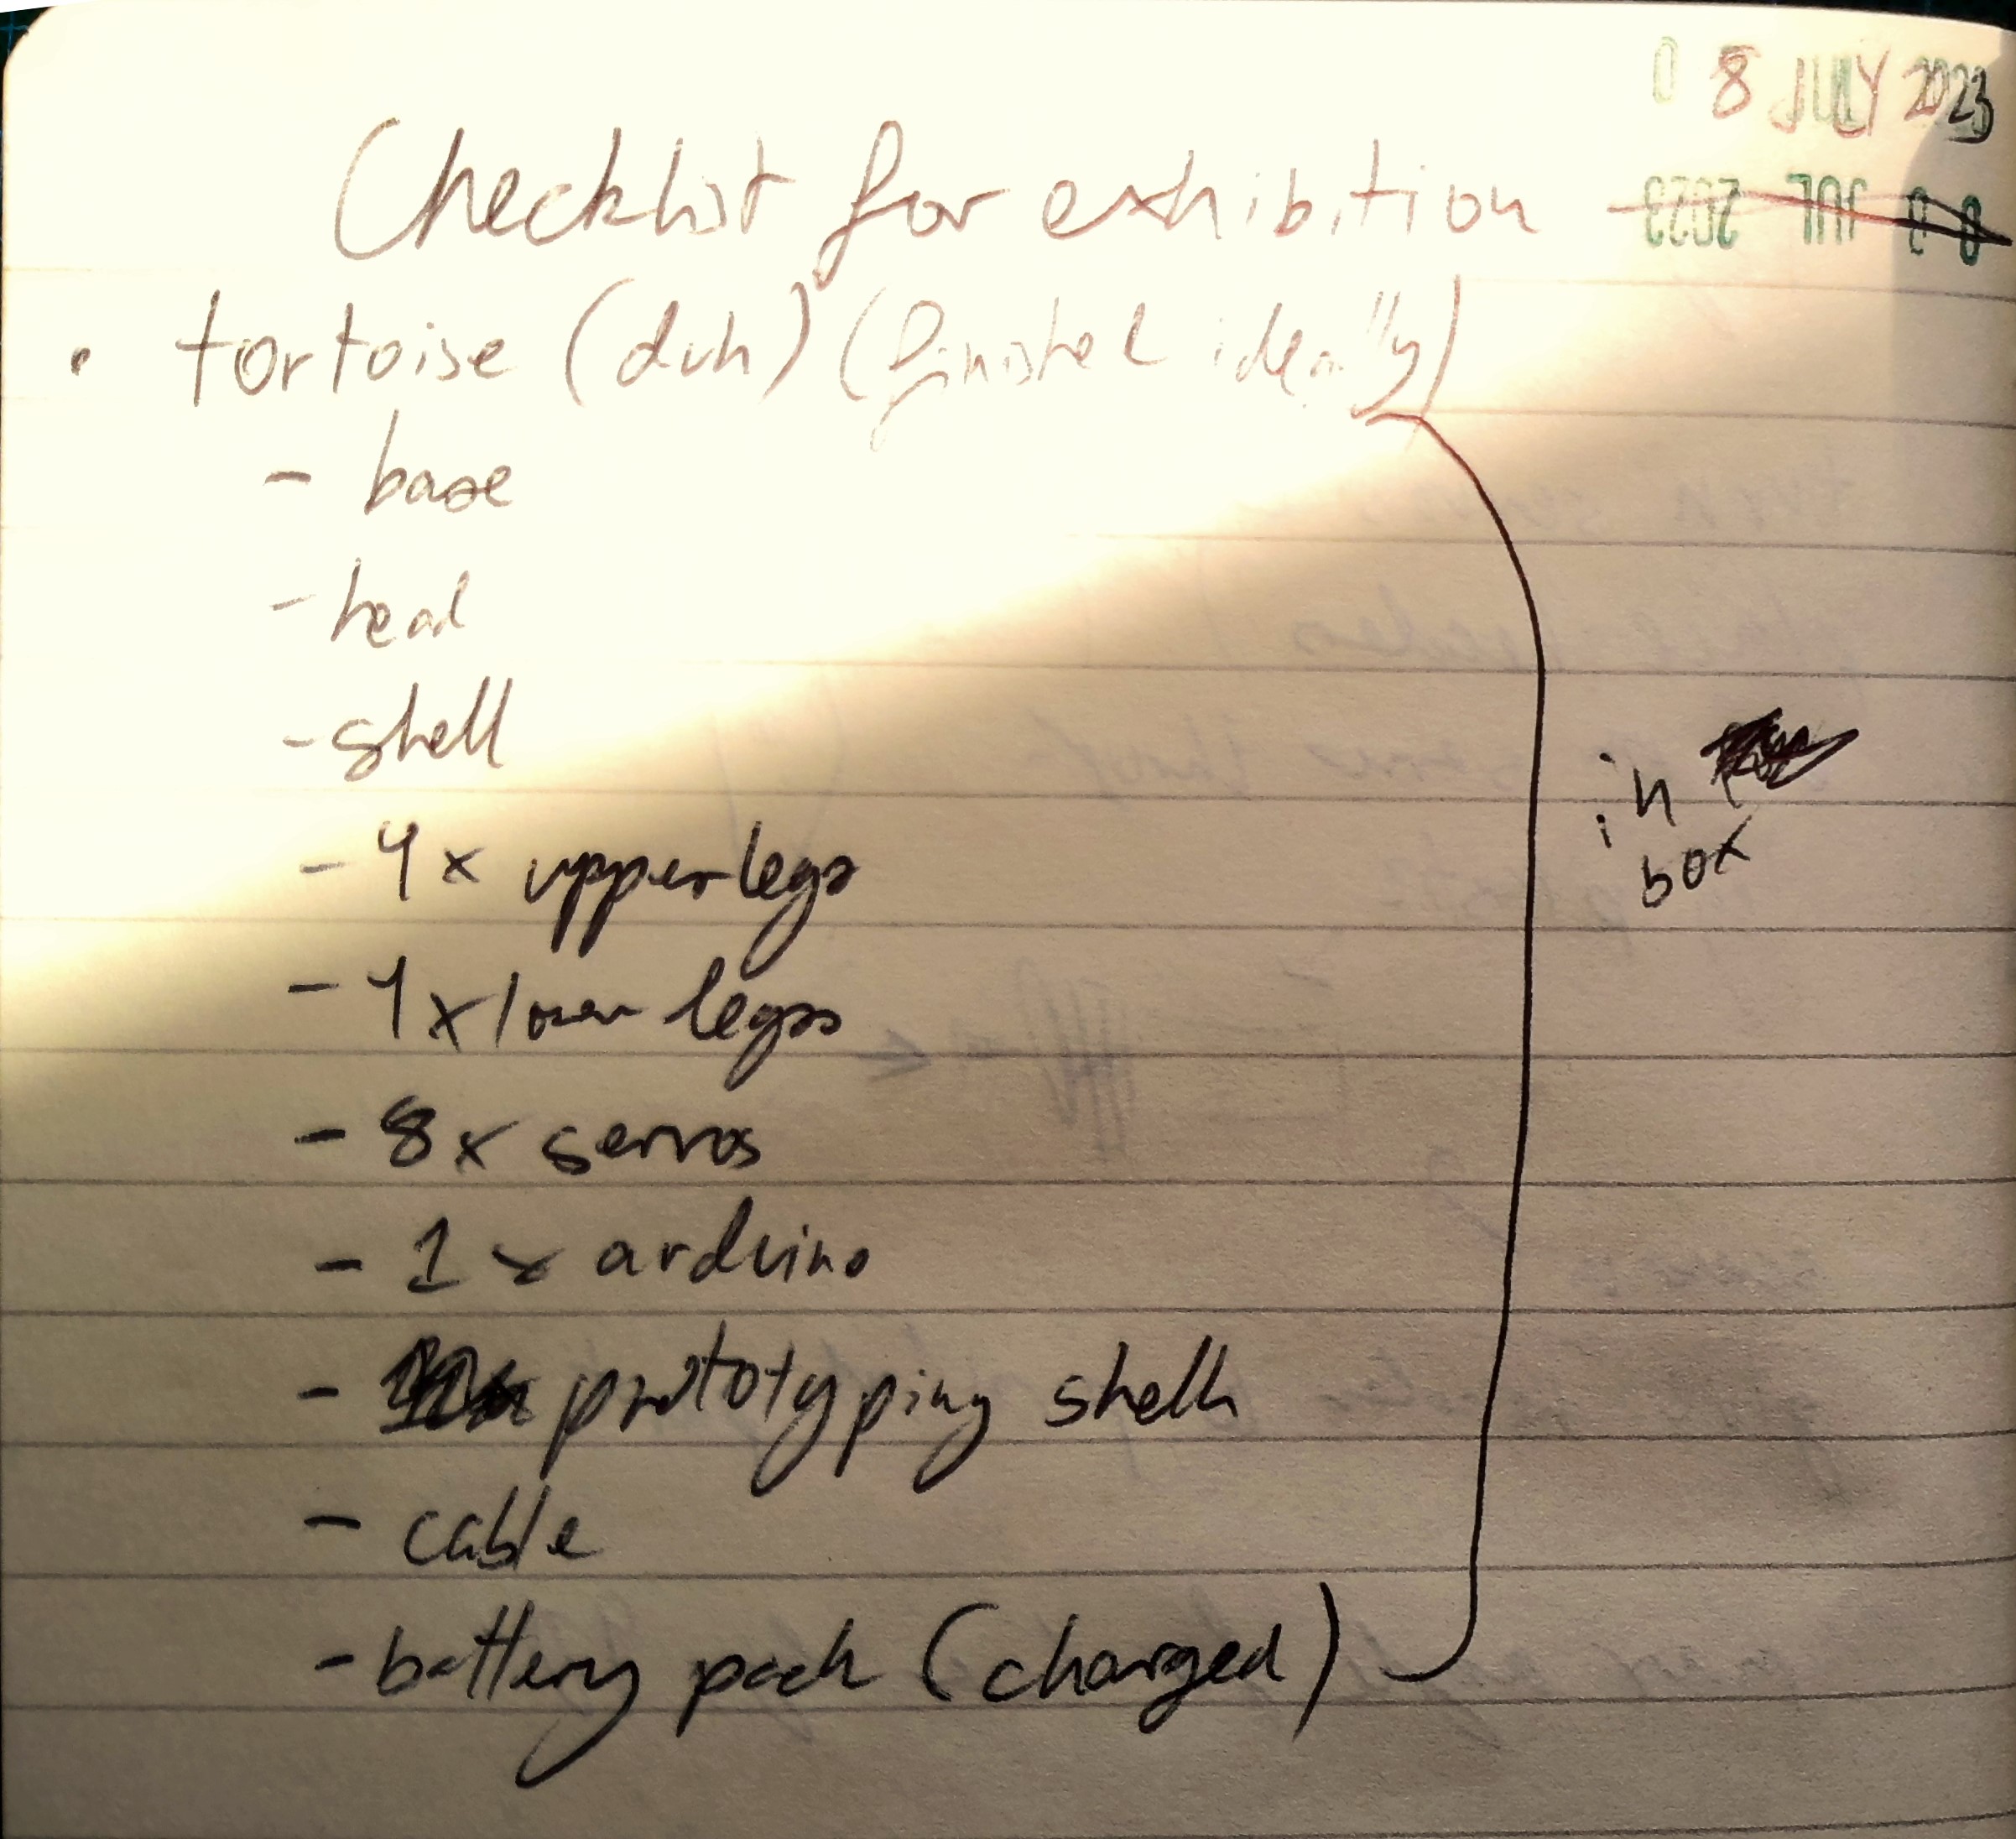 08 JULY 2023
08 JUL 2023
Checklist for exhibition
• tortoise (duh) (finished ideally)
- base
- head
- shell
- 4x upper legs
- 4x lower legs
- 8x servos
- 1x arduino
- prototyping shell
- cable
- battery pack (charged)
in
box